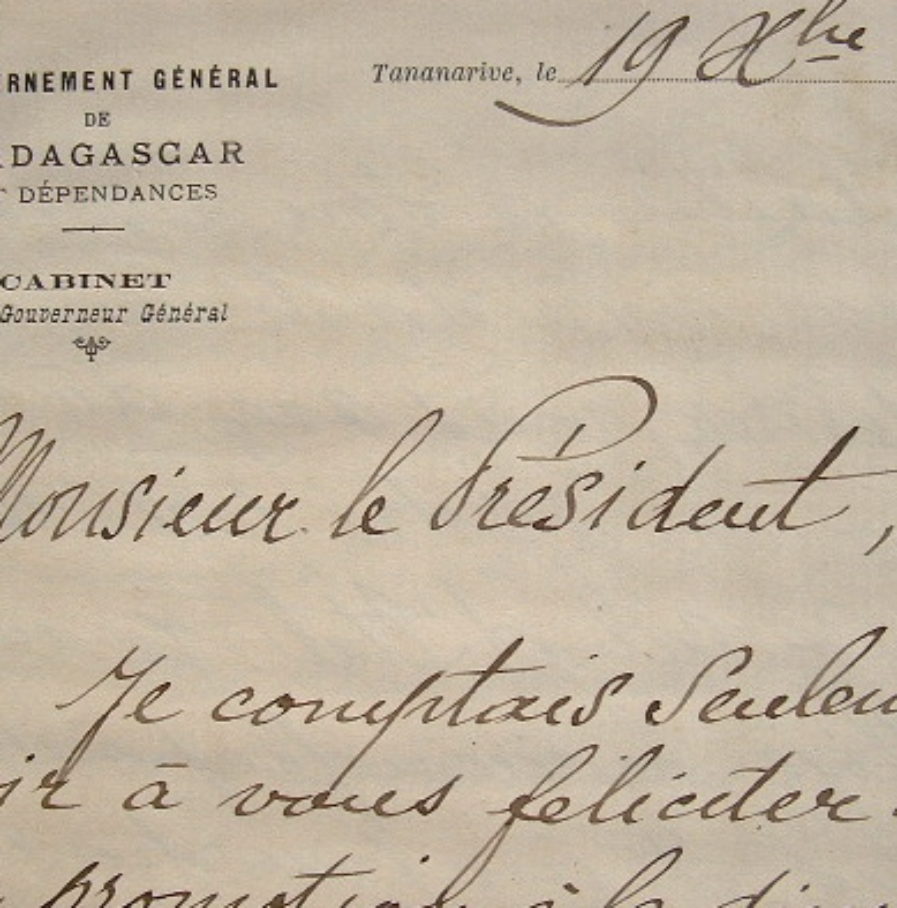 RNEMENT GÉNÉRAL
DE
DAGASCAR
DÉPENDANCES
CABINET
Gouverneur Général
Tananarive, le 19 Xbre
Monsieur le Président,
Je comptais Seulem
ir à vous féliciter
promotion à la